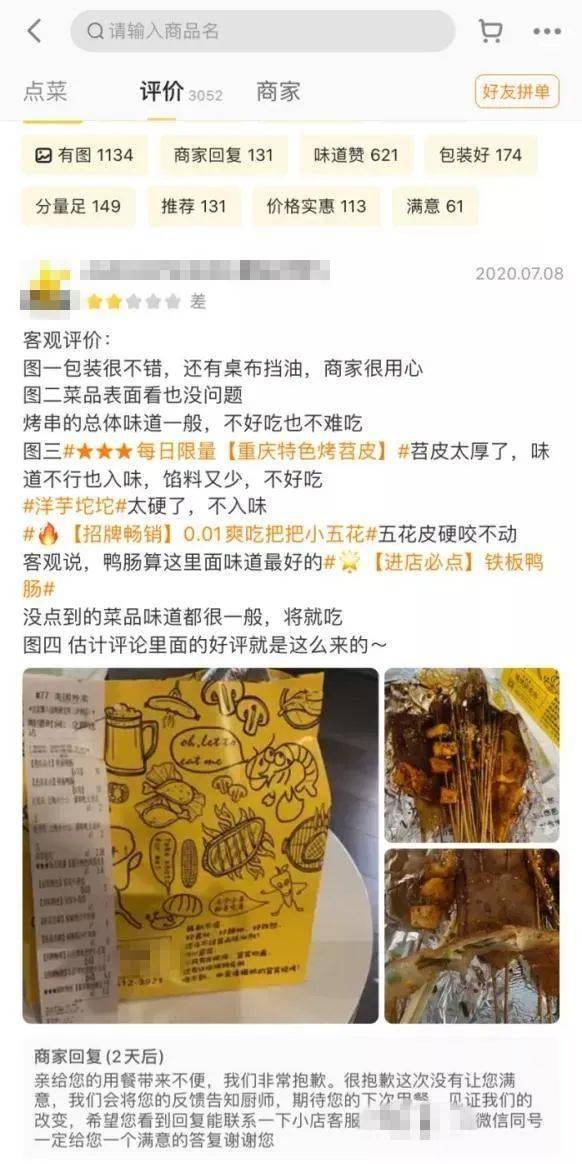 请输入商品名
点菜 评价 3052 商家 好友拼单
有图 1134 商家回复 131 味道赞 621 包装好 174
分量足 149 推荐 131 价格实惠 113 满意 61
2020.07.08
差
客观评价:
图一包装很不错，还有桌布挡油，商家很用心
图二菜品表面看也没问题
烤串的总体味道一般，不好吃也不难吃
图三#★★★每日限量【重庆特色烤苕皮】#苕皮太厚了，味
道不行也入味，馅料又少，不好吃
#洋芋坨坨#太硬了，不入味
#🔥【招牌畅销】0.01爽吃把把小五花#五花皮硬咬不动
客观说，鸭肠算这里面味道最好的#🌟【进店必点】铁板鸭
肠#
没点到的菜品味道都很一般，将就吃
图四 估计评论里面的好评就是这么来的～
#77 美团外卖
oh, let's
eat me
商家回复(2天后)
亲给您的用餐带来不便，我们非常抱歉。很抱歉这次没有让您满
意，我们会将您的反馈告知厨师，期待您的下次用餐，见证我们的
改变，希望您看到回复能联系一下小店客服
微信同号
一定给您一个满意的答复谢谢您